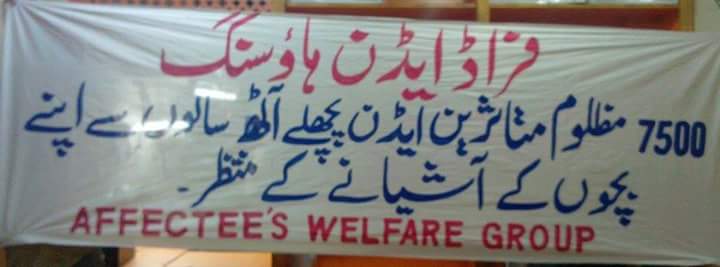 فراڈ ایڈن ہاؤسنگ
7500 مظلوم متاثرین ایڈن پچھلے آٹھ سالوں سے اپنے
بچوں کے آشیانے کے منتظر۔
AFFECTEE'S WELFARE GROUP